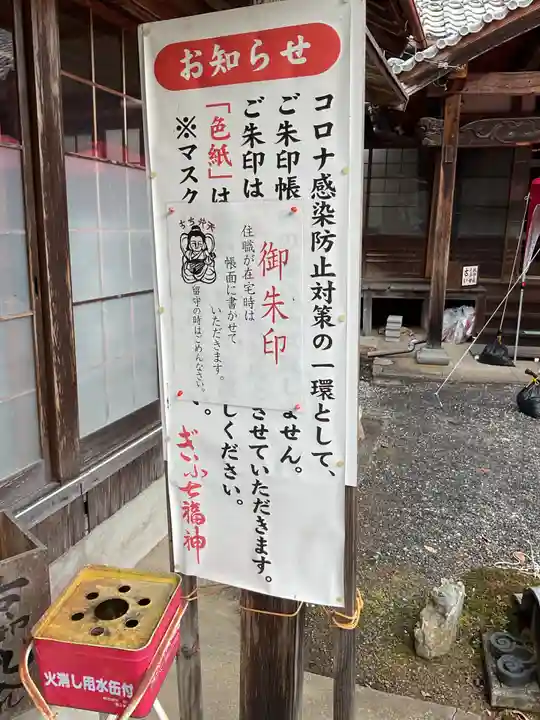 お知らせ
コロナ感染防止対策の一環として、
ご朱印帳
ません。
ご朱印は
させていただきます。
「色紙」は
しください。
※マスク
ぎふ七福神
御朱印
住職が在宅時は
帳面に書かせて
いただきます。
留守の時はごめんなさい。
火消し用水缶付